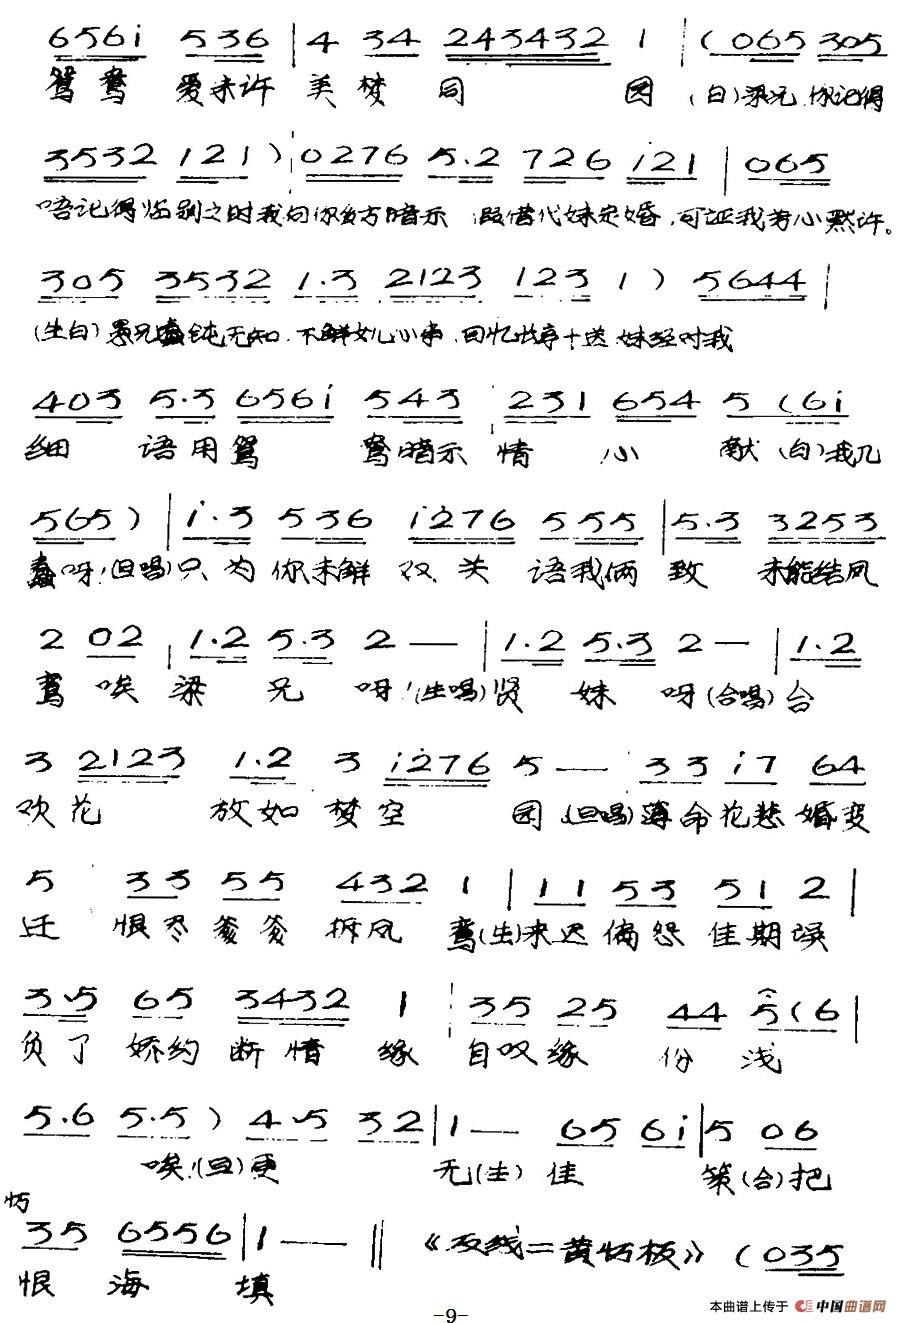 6561̇ 536 | 4 34 243432 1 | (065 305
鸳鸯 爱未许 美梦 同 园 (白)梁兄,你记得
3532 121) ¦ 0276 5.2 726 1̇21 | 065
唔记得临别之时我向你多方暗示 假借代妹定婚,可证我芳心默许。
305 3532 1.3 2123 123 1) 5644 |
(生白)愚兄蠢钝无知,不解妙心事,回忆长亭十送 妹经对我
403 5.3 6561̇ 543 ¦ 231 654 5 (61̇
细 语用鸳 鸯暗示 情 心 献 (白)我几
565) | 1̇.3 536 1̇276 555 | 5.3 3253
蠢呀!(旦唱)只为你未解 双关 语我俩 致 未能结凤
2 02 | 1.2 5.3 2 — | 1.2 5.3 2 — | 1.2
鸾 唉 梁 兄 呀!(生唱)贤 妹 呀(合唱)合
3 2123 1.2 3 1̇276 5 — 33 1̇7 64
欢花 放如梦空 园(旦唱)薄命花悲婚变
5 33 55 432 1 | 11 53 51 2 |
迁 恨尽爹爹拆凤 鸾(生)来迟偏怨佳期误
35 65 3432 1 ¦ 35 25 44 5(6 |
负了娇约断情 缘 自叹缘 份 浅
5.6 5.5) 4.5 32 | 1 — 65 61̇ | 5 06
唉!(旦)更 无(生)佳 策(合)把
35 6556 | 1 — ‖ 《反线二黄慢板》 (035
恨 海 填
-9-
本曲谱上传于 中国曲谱网